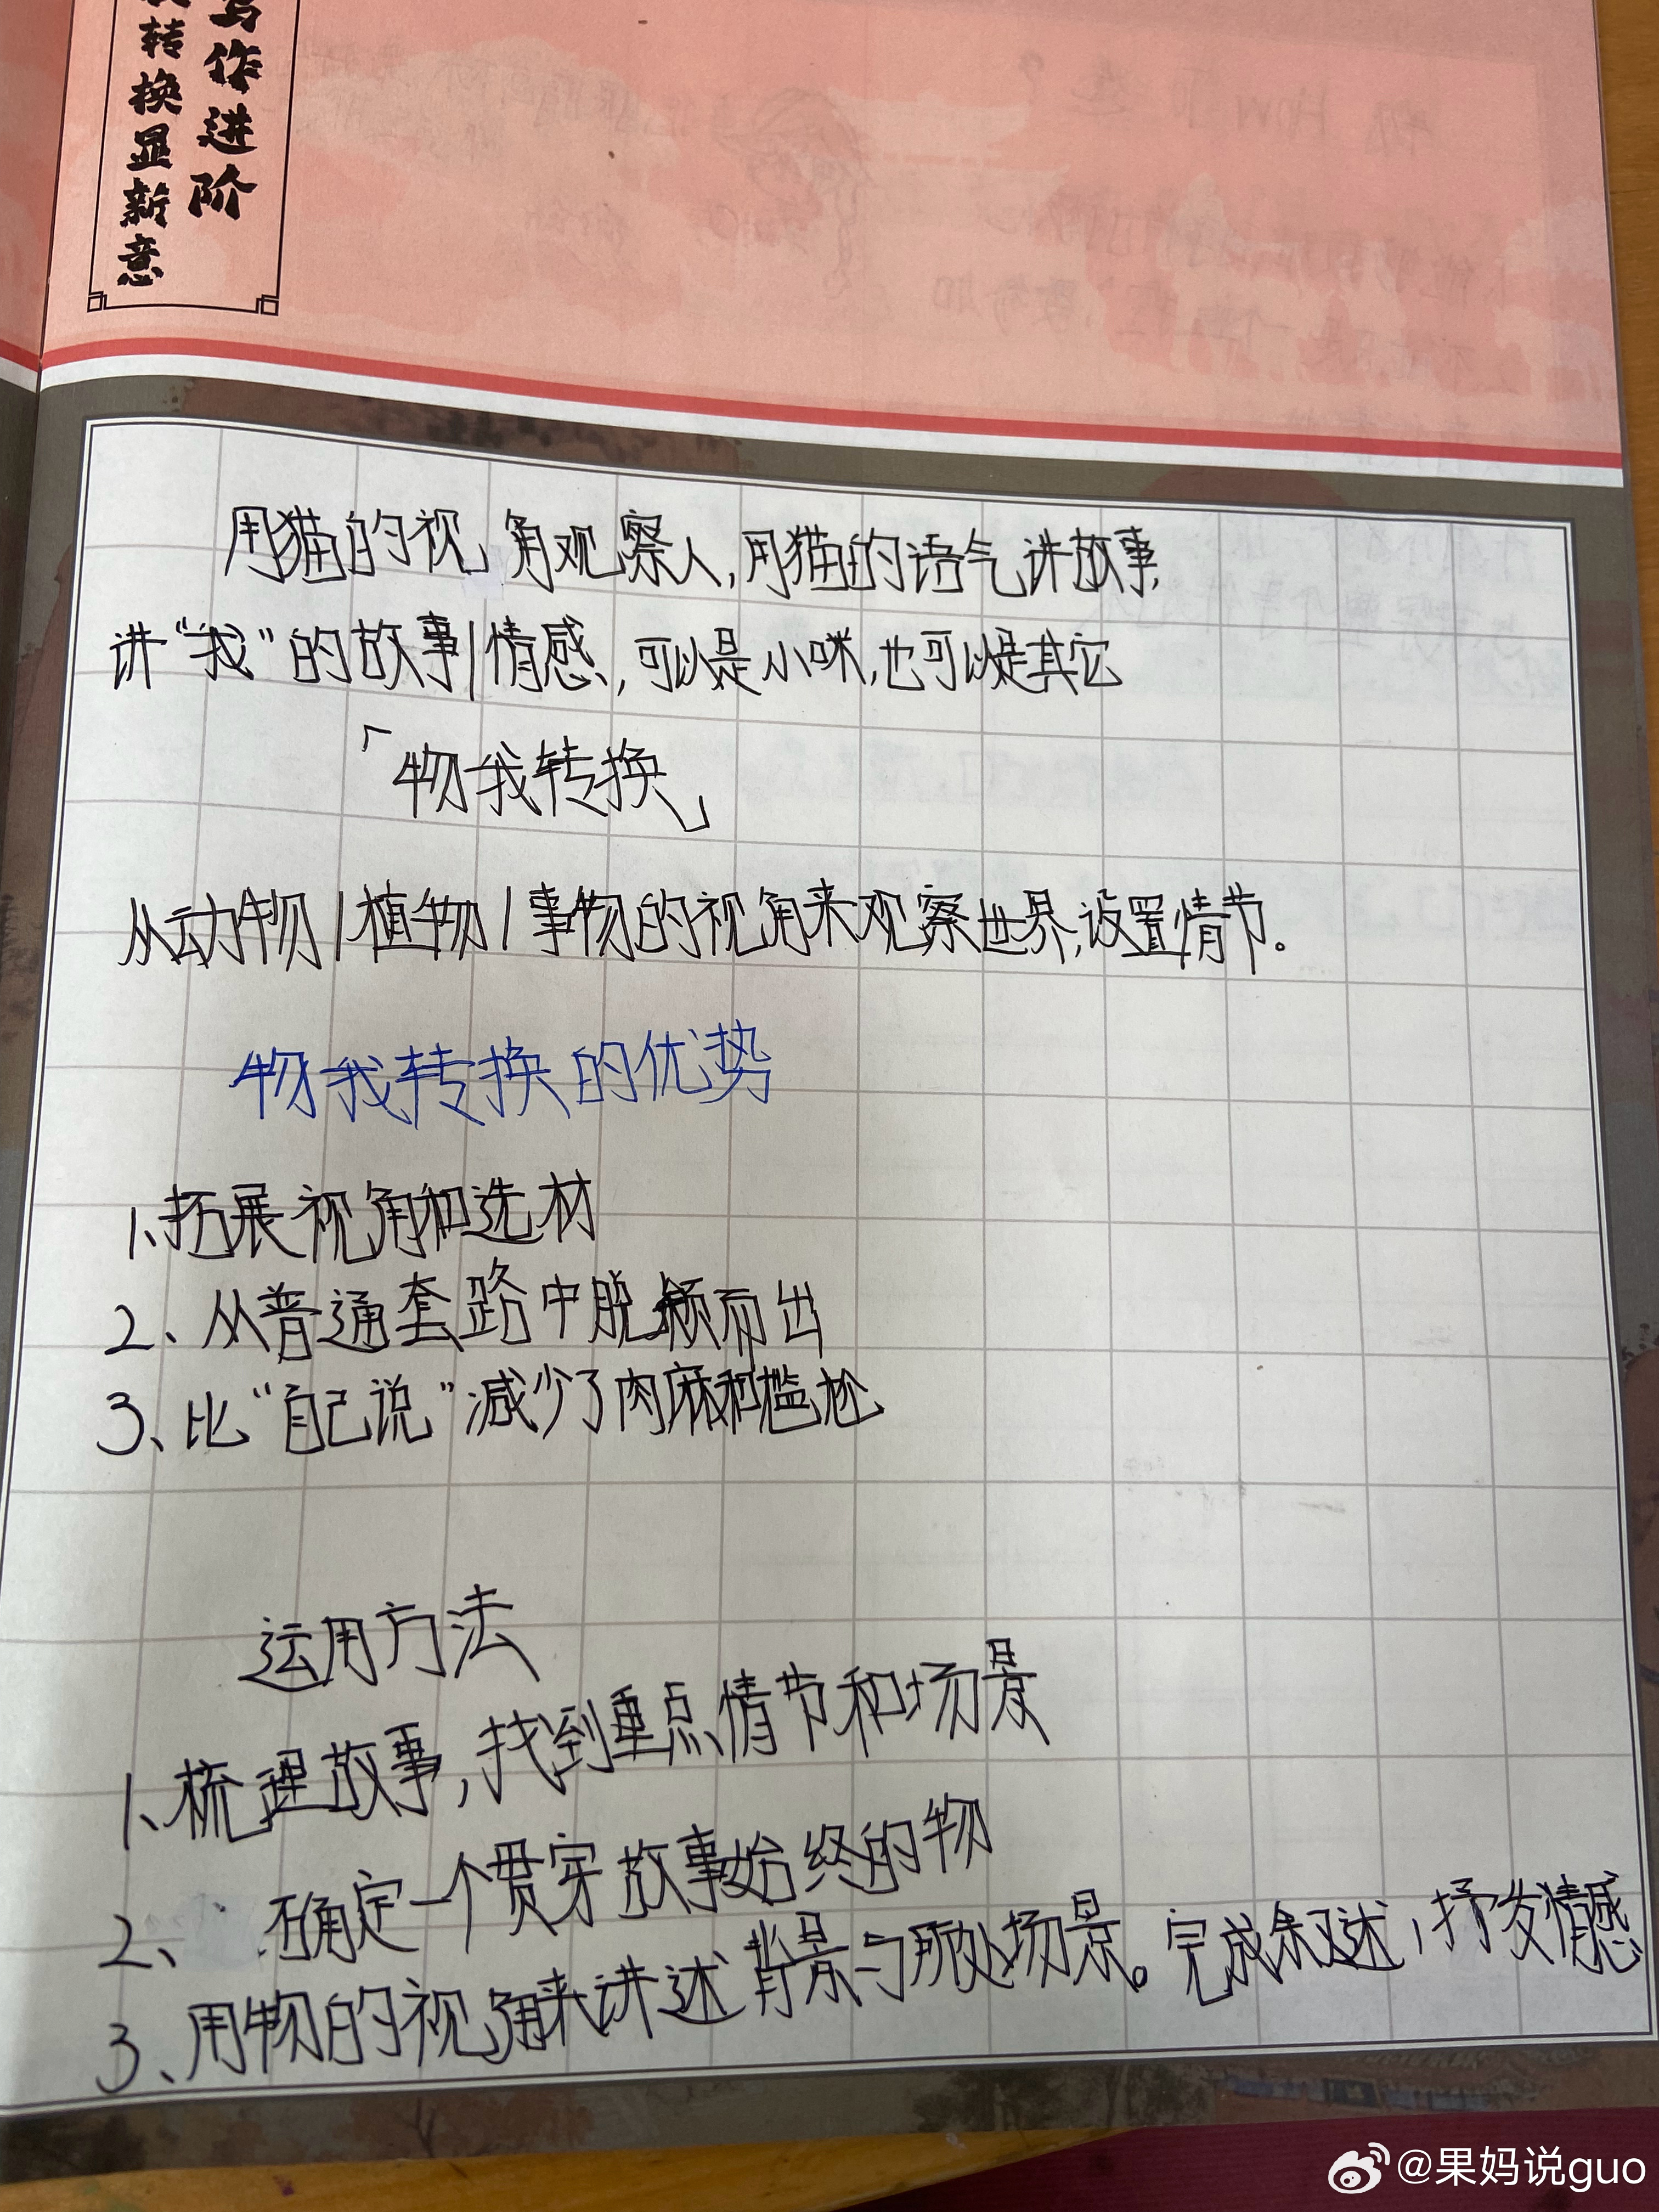 写作进阶
转换显新意
用猫的视角观察人,用猫的语气讲故事,
讲“我”的故事/情感,可以是小咪,也可以是其它
「物我转换」
从动物/植物/事物的视角来观察世界,设置情节。
物我转换的优势
1、拓展视角和选材
2、从普通套路中脱颖而出
3、比“自己说”减少了肉麻和尴尬
运用方法
1、梳理故事,找到重点情节和场景
2、确定一个贯穿故事始终的物
3、用物的视角来讲述背景与所处场景。完成叙述,抒发情感
@果妈说guo